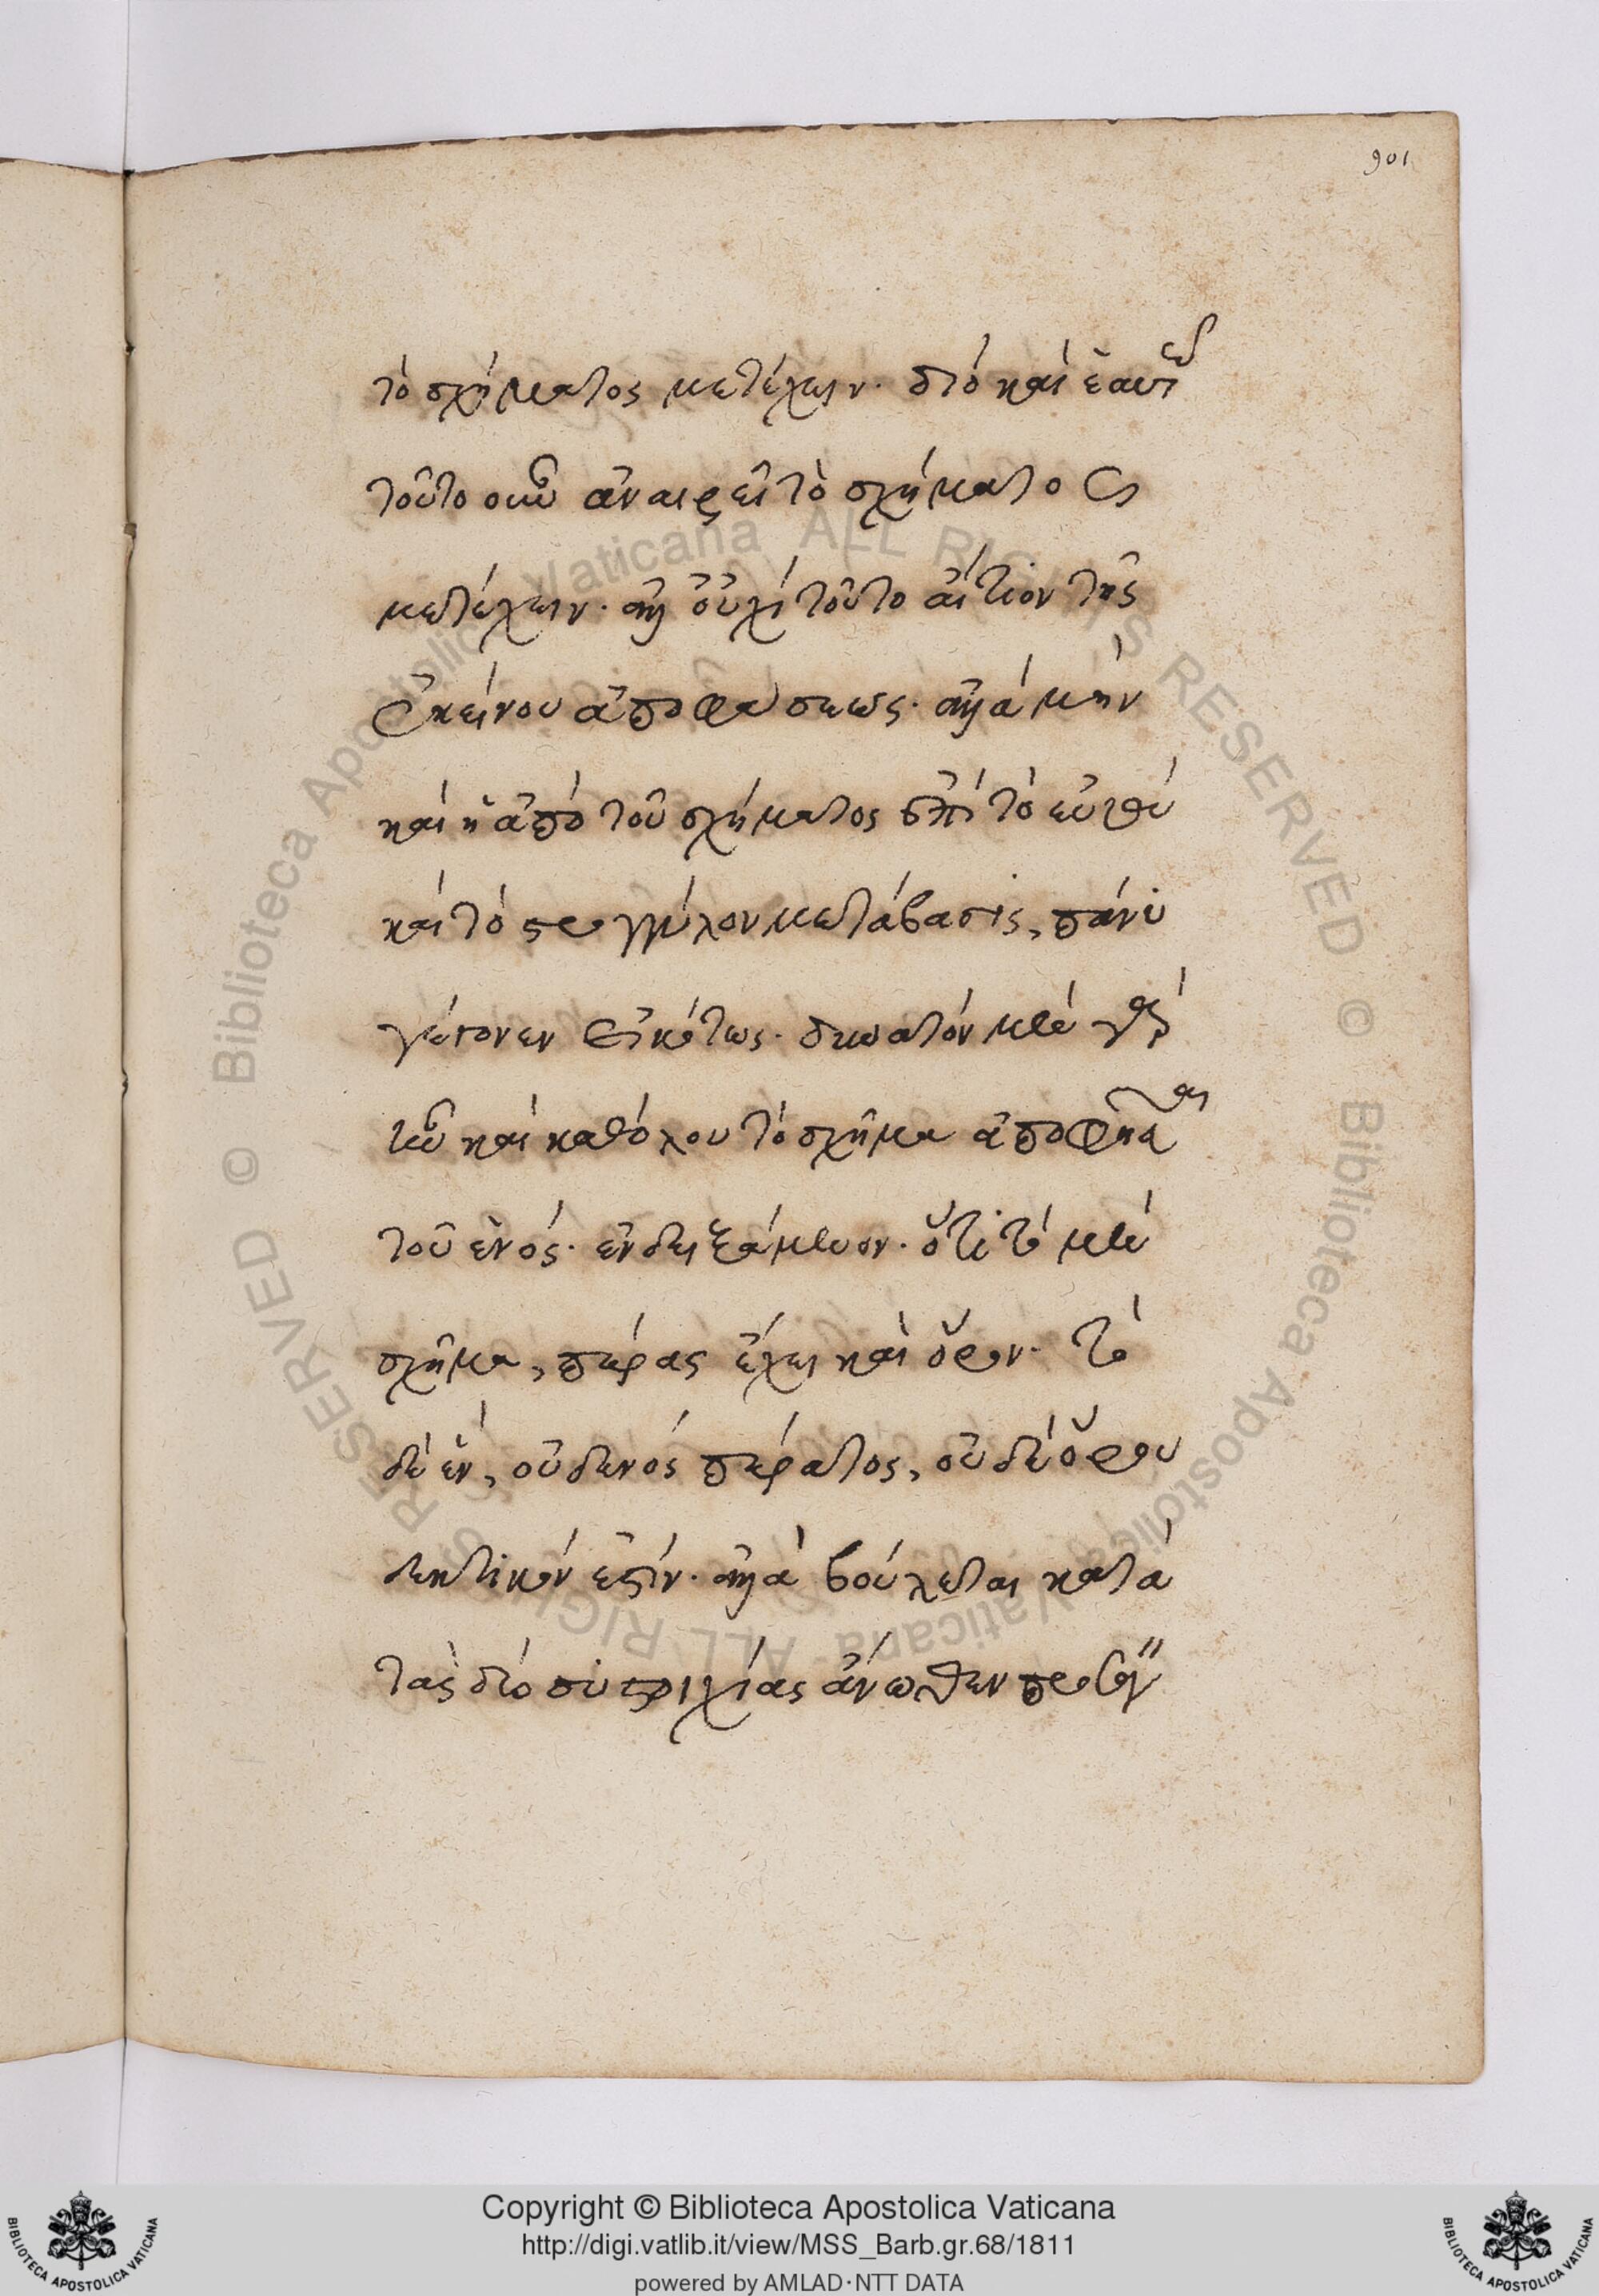 901
τὸ σχήματος μετέχειν. διὸ καὶ ἑαυτῶ
τοῦτο οὖν ἀναιρεῖ τὸ σχήματος
μετέχειν. ἀλλ' οὐχὶ τοῦτο αἴτιον τῆς
ἐκείνου ἀποφάσεως. ἀλλὰ μὴν
καὶ ἡ ἀπὸ τοῦ σχήματος ἐπὶ τὸ εὐθὺ
καὶ τὸ στρογγύλον μετάβασις, πάνυ
γέγονεν εἰκότως. δυνατὸν μὲν γὰρ
ἦν καὶ καθόλου τὸ σχῆμα ἀποφῆσαι
τοῦ ἑνός. ἐνδειξάμενον. ὅτι τὸ μὲν
σχῆμα, πέρας ἔχει καὶ ὅρον. τὸ
δὲ ἓν, οὐδενὸς πέρατος, οὐδὲ ὅρου
δεκτικόν ἐστίν. ἀλλὰ βούλεται κατὰ
τὰς δύο συστοιχίας ἄνωθεν
Copyright © Biblioteca Apostolica Vaticana
http://digi.vatlib.it/view/MSS_Barb.gr.68/1811
powered by AMLAD·NTT DATA
BIBLIOTECA APOSTOLICA VATICANA
BIBLIOTECA APOSTOLICA VATICANA
© Biblioteca Apostolica Vaticana ALL RIGHTS RESERVED
© Biblioteca Apostolica Vaticana ALL RIGHTS RESERVED